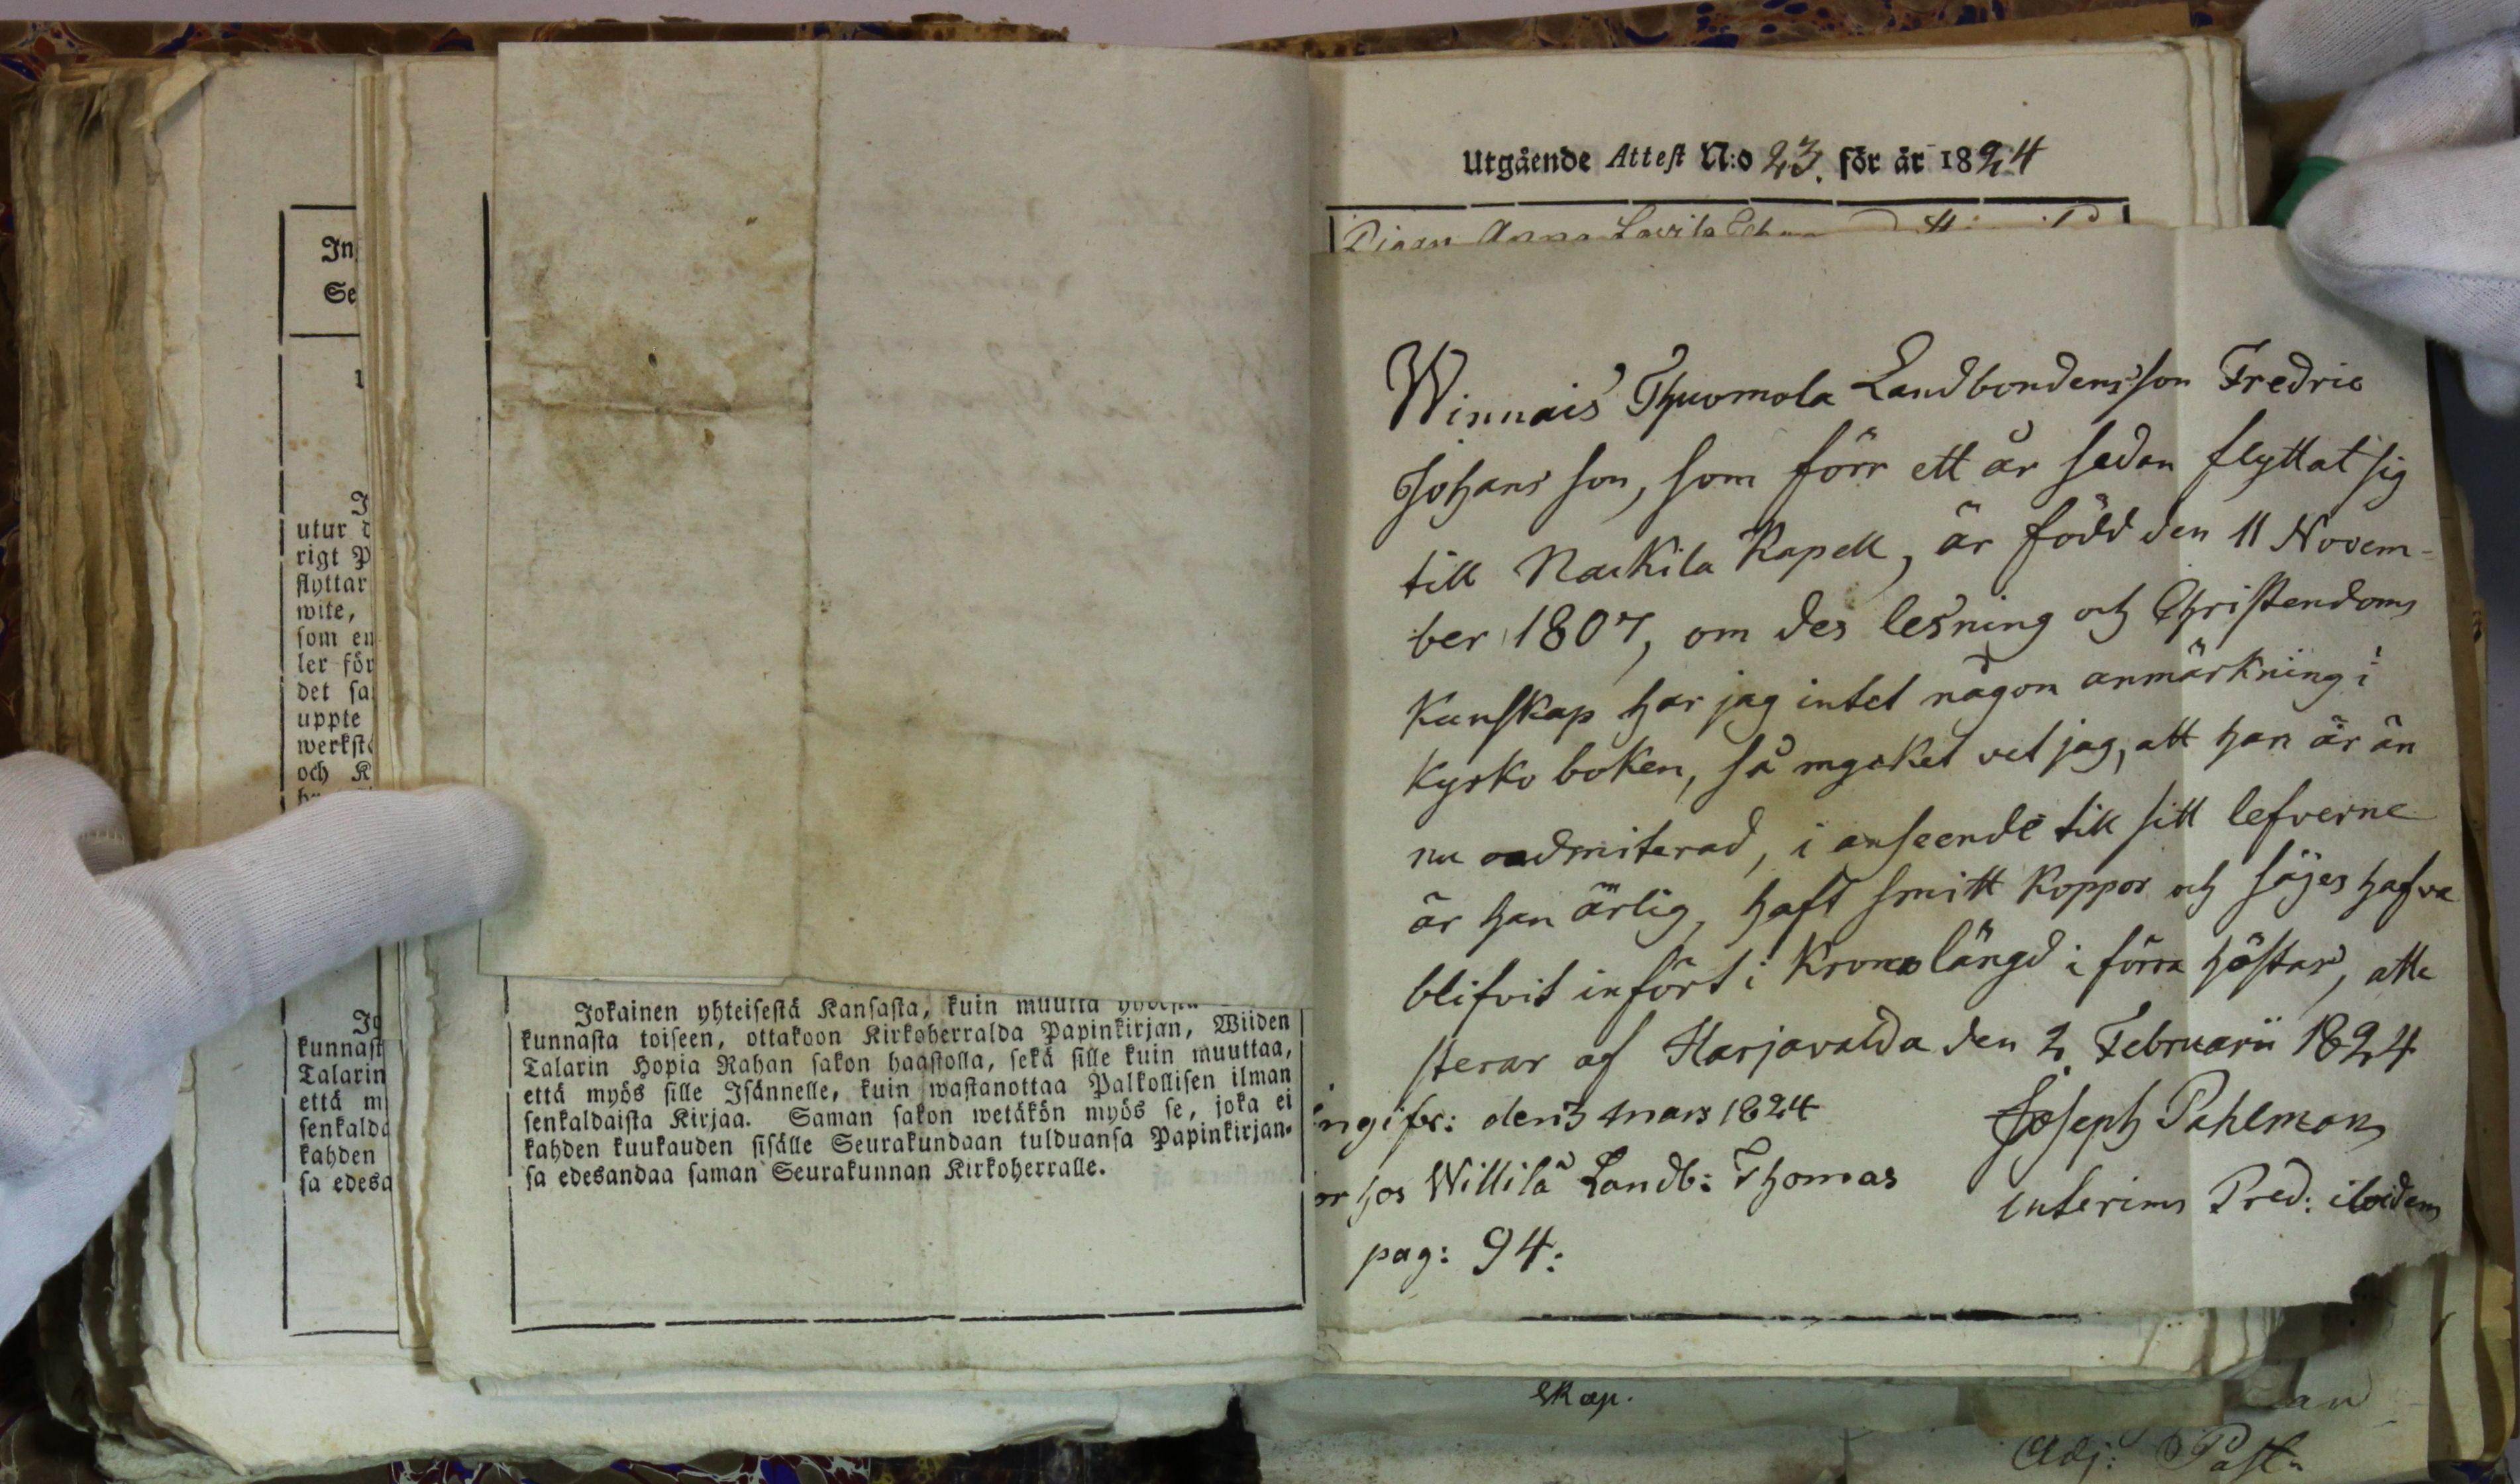 In
Se
1
J
utur d
rigt P
flyttar
wite,
som en
ler för
det sa
uppte
werkst
och K
Jo
kunnast
Talarin
että m
senkalda
kahden
sa edesa
Jokainen yhteisestä Kansasta, kuin muutta
kunnasta toiseen, ottakoon Kirkoherralda Papinkirjan, Wiiden
Talarin Hopia Rahan sakon haastolla, sekä sille kuin muuttaa,
että myös sille Isännelle, kuin wastanottaa Palkollisen ilman
senkaldaista Kirjaa. Saman sakon wetäkön myös se, joka ei
kahden kuukauden sisälle Seurakundaan tulduansa Papinkirjan-
sa edesandaa saman Seurakunnan Kirkoherralle.
Utgående Attest N:o 23. för år 1824
Pigan Anna Lovisa
Winnais Thuomola Landbondens son Fredric
Johans son, som förr ett år sedan flyttat sig
till Nackila Kapell, är född den 11 Novem-
ber 1807, om des lesning och Christendoms
Kunskap har jag intet någon anmärkning i
Kyrko boken, så mycket vet jag, att han är än
nu oadmiterad, i anseende till sitt lefverne
är han ärlig, haft smitt Koppor och säjes hafva
blifvit infört i Krono längd i förra höstas, atte
sterar af Harjavalda den 2 Februarii 1824
ingifv: den 3 Mars 1824 Joseph Pahlman
or hos Willilä Landb: Thomas Interims Pred: ibidem
pag: 94:
skap.
an
Adj: Past: